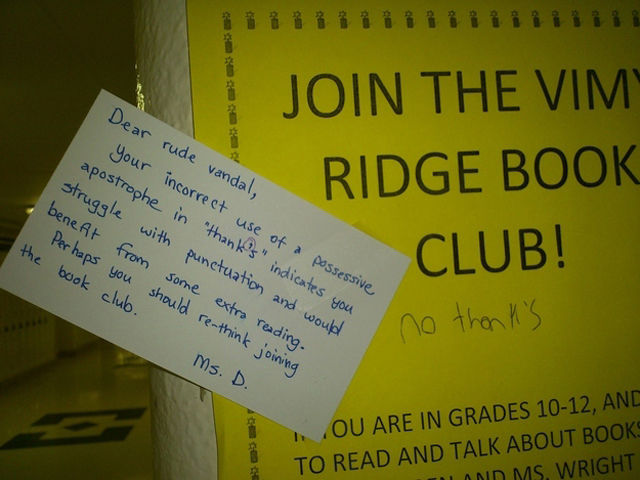 Dear rude vandal,
Your incorrect use of a possessive
apostrophe in "thank's" indicates you
struggle with punctuation and would
benefit from some extra reading.
Perhaps you should re-think joining
the book club.
Ms. D.
JOIN THE VIMY
RIDGE BOOK
CLUB!
no thank's
IF YOU ARE IN GRADES 10-12, AND
TO READ AND TALK ABOUT BOOKS
AND MS. WRIGHT